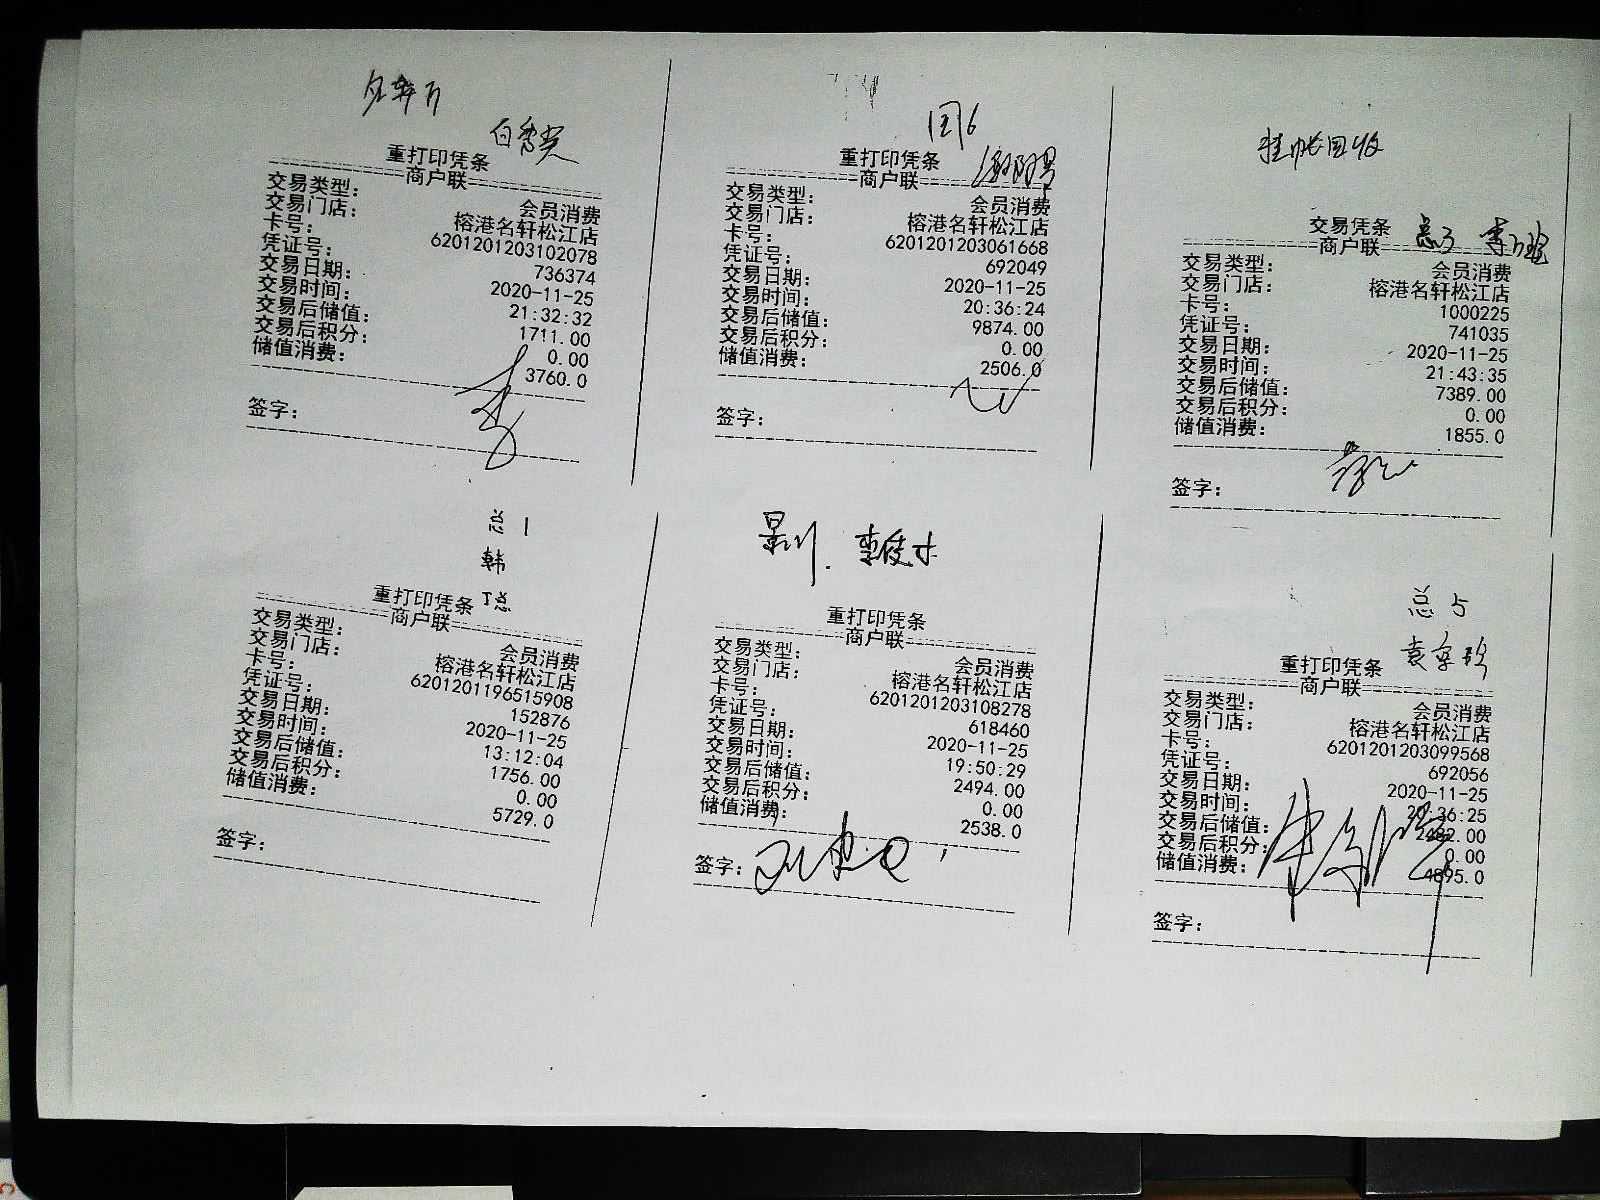 重打印凭条
商户联
交易类型: 会员消费
交易门店: 榕港名轩松江店
卡号: 6201201203102078
凭证号: 736374
交易日期: 2020-11-25
交易时间: 21:32:32
交易后储值: 1711.00
交易后积分: 0.00
储值消费: 3760.0
签字:
国6
重打印凭条
商户联
交易类型: 会员消费
交易门店: 榕港名轩松江店
卡号: 6201201203061668
凭证号: 692049
交易日期: 2020-11-25
交易时间: 20:36:24
交易后储值: 9874.00
交易后积分: 0.00
储值消费: 2506.0
签字:
挂帐回收
交易凭条 总3
商户联
交易类型: 会员消费
交易门店: 榕港名轩松江店
卡号: 1000225
凭证号: 741035
交易日期: 2020-11-25
交易时间: 21:43:35
交易后储值: 7389.00
交易后积分: 0.00
储值消费: 1855.0
签字:
总1
韩
重打印凭条 丁总
商户联
交易类型: 会员消费
交易门店: 榕港名轩松江店
卡号: 6201201196515908
凭证号: 152876
交易日期: 2020-11-25
交易时间: 13:12:04
交易后储值: 1756.00
交易后积分: 0.00
储值消费: 5729.0
签字:
重打印凭条
商户联
交易类型: 会员消费
交易门店: 榕港名轩松江店
卡号: 6201201203108278
凭证号: 618460
交易日期: 2020-11-25
交易时间: 19:50:29
交易后储值: 2494.00
交易后积分: 0.00
储值消费: 2538.0
签字:
总5
重打印凭条
商户联
交易类型: 会员消费
交易门店: 榕港名轩松江店
卡号: 6201201203099568
凭证号: 692056
交易日期: 2020-11-25
交易时间: 20:36:25
交易后储值:
交易后积分: 0.00
储值消费: 4895.0
签字: